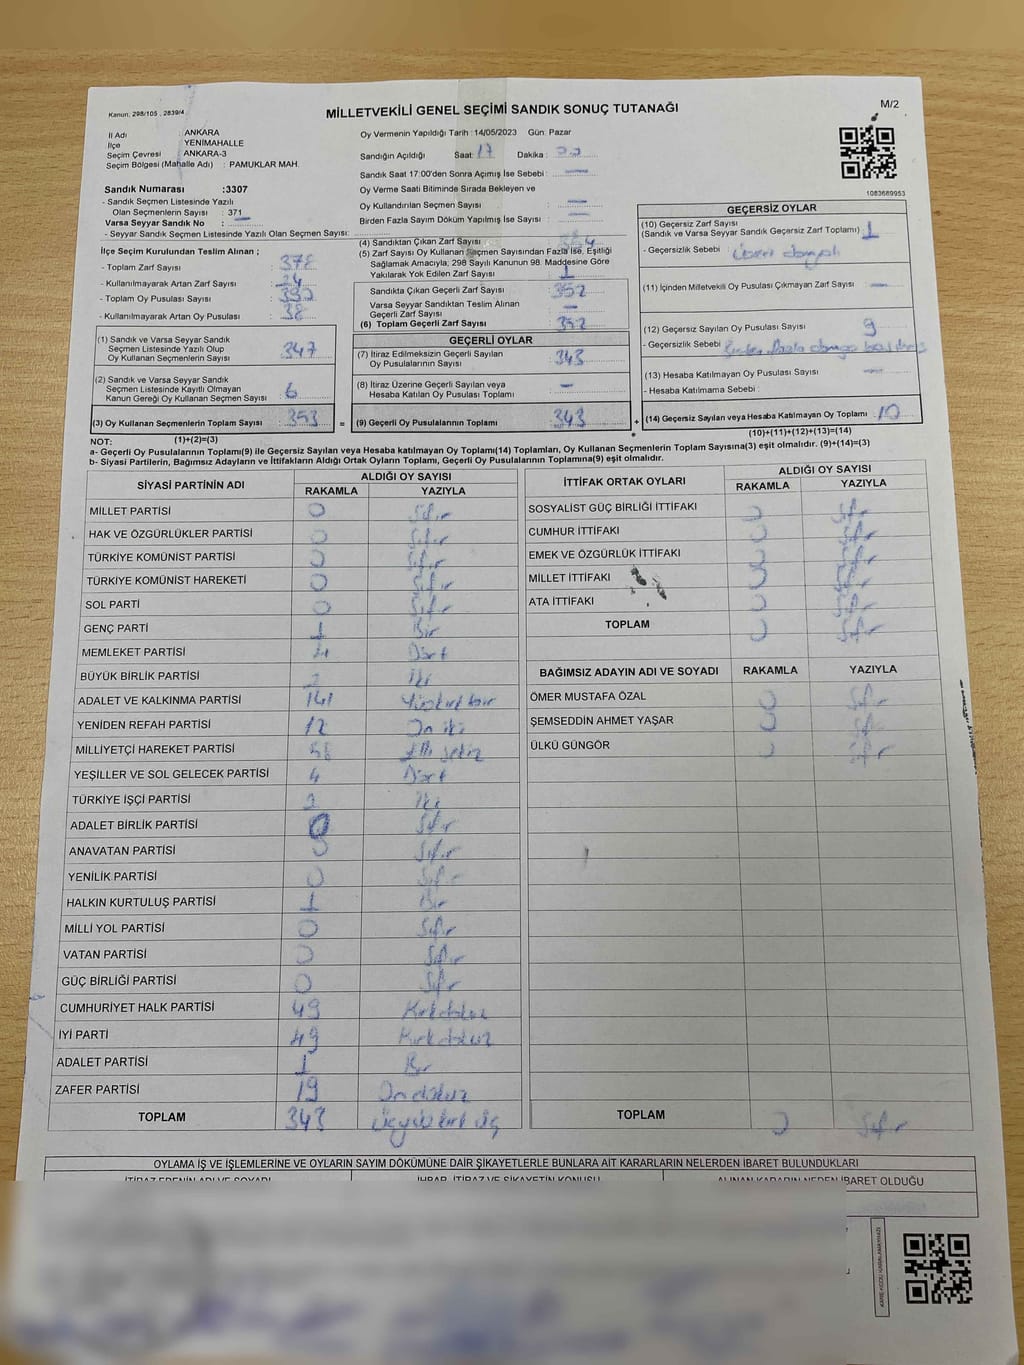 Kanun, 298/105 , 2839/4
MİLLETVEKİLİ GENEL SEÇİMİ SANDIK SONUÇ TUTANAĞI
M/2
İl Adı : ANKARA
İlçe : YENİMAHALLE
Seçim Çevresi : ANKARA-3
Seçim Bölgesi (Mahalle Adı) : PAMUKLAR MAH.
Sandık Numarası :3307
- Sandık Seçmen Listesinde Yazılı
Olan Seçmenlerin Sayısı : 371
Varsa Seyyar Sandık No :
- Seyyar Sandık Seçmen Listesinde Yazılı Olan Seçmen Sayısı:
Oy Vermenin Yapıldığı Tarih :14/05/2023 Gün: Pazar
Sandığın Açıldığı Saat: 17 Dakika :
Sandık Saat 17:00'den Sonra Açımış İse Sebebi : —
Oy Verme Saati Bitiminde Sırada Bekleyen ve
Oy Kullandırılan Seçmen Sayısı : —
Birden Fazla Sayım Döküm Yapılmış İse Sayısı : —
1083689953
İlçe Seçim Kurulundan Teslim Alınan ;
- Toplam Zarf Sayısı : 378
- Kullanılmayarak Artan Zarf Sayısı : 24
- Toplam Oy Pusulası Sayısı :
- Kullanılmayarak Artan Oy Pusulası : 38
(1) Sandık ve Varsa Seyyar Sandık
Seçmen Listesinde Yazılı Olup
Oy Kullanan Seçmenlerin Sayısı : 347
(2) Sandık ve Varsa Seyyar Sandık
Seçmen Listesinde Kayıtlı Olmayan
Kanun Gereği Oy Kullanan Seçmen Sayısı : 6
(3) Oy Kullanan Seçmenlerin Toplam Sayısı : 353 =
(4) Sandıktan Çıkan Zarf Sayısı : 354
(5) Zarf Sayısı Oy Kullanan Seçmen Sayısından Fazla İse, Eşitliği
Sağlamak Amacıyla; 298 Sayılı Kanunun 98. Maddesine Göre
Yakılarak Yok Edilen Zarf Sayısı : 1
Sandıkta Çıkan Geçerli Zarf Sayısı : 352
Varsa Seyyar Sandıktan Teslim Alınan
Geçerli Zarf Sayısı : —
(6) Toplam Geçerli Zarf Sayısı : 352
GEÇERLİ OYLAR
(7) İtiraz Edilmeksizin Geçerli Sayılan
Oy Pusulalarının Sayısı : 343
(8) İtiraz Üzerine Geçerli Sayılan veya
Hesaba Katılan Oy Pusulası Toplamı : —
(9) Geçerli Oy Pusulalarının Toplamı : 343 +
GEÇERSİZ OYLAR
(10) Geçersiz Zarf Sayısı
(Sandık ve Varsa Seyyar Sandık Geçersiz Zarf Toplamı) : 1
- Geçersizlik Sebebi :
(11) İçinden Milletvekili Oy Pusulası Çıkmayan Zarf Sayısı : —
(12) Geçersiz Sayılan Oy Pusulası Sayısı : 9
- Geçersizlik Sebebi
(13) Hesaba Katılmayan Oy Pusulası Sayısı : —
- Hesaba Katılmama Sebebi :
(14) Geçersiz Sayılan veya Hesaba Katılmayan Oy Toplamı : 10
(10)+(11)+(12)+(13)=(14)
NOT: (1)+(2)=(3)
a- Geçerli Oy Pusulalarının Toplamı(9) ile Geçersiz Sayılan veya Hesaba katılmayan Oy Toplamı(14) Toplamları, Oy Kullanan Seçmenlerin Toplam Sayısına(3) eşit olmalıdır. (9)+(14)=(3)
b- Siyasi Partilerin, Bağımsız Adayların ve İttifakların Aldığı Ortak Oyların Toplamı, Geçerli Oy Pusulalarının Toplamına(9) eşit olmalıdır.
SİYASİ PARTİNİN ADI ALDIĞI OY SAYISI
RAKAMLA YAZIYLA
MİLLET PARTİSİ 0 Sıfır
HAK VE ÖZGÜRLÜKLER PARTİSİ 0 Sıfır
TÜRKİYE KOMÜNİST PARTİSİ 0 Sıfır
TÜRKİYE KOMÜNİST HAREKETİ 0 Sıfır
SOL PARTİ 0 Sıfır
GENÇ PARTİ 1 Bir
MEMLEKET PARTİSİ 4 Dört
BÜYÜK BİRLİK PARTİSİ 2 İki
ADALET VE KALKINMA PARTİSİ 141 Yüzkırkbir
YENİDEN REFAH PARTİSİ 12 On iki
MİLLİYETÇİ HAREKET PARTİSİ 58 Elli sekiz
YEŞİLLER VE SOL GELECEK PARTİSİ 4 Dört
TÜRKİYE İŞÇİ PARTİSİ 2 İki
ADALET BİRLİK PARTİSİ 0 Sıfır
ANAVATAN PARTİSİ 0 Sıfır
YENİLİK PARTİSİ 0 Sıfır
HALKIN KURTULUŞ PARTİSİ 1 Bir
MİLLİ YOL PARTİSİ 0 Sıfır
VATAN PARTİSİ 0 Sıfır
GÜÇ BİRLİĞİ PARTİSİ 0 Sıfır
CUMHURİYET HALK PARTİSİ 49 Kırkdokuz
İYİ PARTİ 49 Kırkdokuz
ADALET PARTİSİ 1 Bir
ZAFER PARTİSİ 19 Ondokuz
TOPLAM 343 Üçyüz kırk üç
İTTİFAK ORTAK OYLARI ALDIĞI OY SAYISI
RAKAMLA YAZIYLA
SOSYALİST GÜÇ BİRLİĞİ İTTİFAKI 0 Sıfır
CUMHUR İTTİFAKI 0 Sıfır
EMEK VE ÖZGÜRLÜK İTTİFAKI 0 Sıfır
MİLLET İTTİFAKI 0 Sıfır
ATA İTTİFAKI 0 Sıfır
TOPLAM 0 Sıfır
BAĞIMSIZ ADAYIN ADI VE SOYADI RAKAMLA YAZIYLA
ÖMER MUSTAFA ÖZAL 0 Sıfır
ŞEMSEDDİN AHMET YAŞAR 0 Sıfır
ÜLKÜ GÜNGÖR 0 Sıfır
TOPLAM 0 Sıfır
OYLAMA İŞ VE İŞLEMLERİNE VE OYLARIN SAYIM DÖKÜMÜNE DAİR ŞİKAYETLERLE BUNLARA AİT KARARLARIN NELERDEN İBARET BULUNDUKLARI
İTİRAZ EDENİN ADI VE SOYADI İHBAR, İTİRAZ VE ŞİKAYETİN KONUSU ALINAN KARARIN NEDEN İBARET OLDUĞU